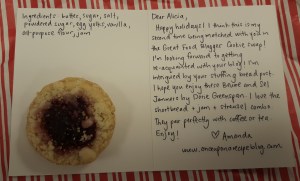 Ingredients: butter, sugar, salt,
powdered sugar, egg yolks, vanilla,
all-purpose flour, jam
Dear Alicia,
Happy holidays! I think this is my
second time being matched with you in
the Great Food Blogger Cookie Swap!
I'm looking forward to getting
re-acquainted with your blog! I'm
intrigued by your stuffing bread post.
I hope you enjoy these Beurre and Sel
Jammers by Dorie Greenspan. I love the
shortbread + jam + streusel combo.
They pair perfectly with coffee or tea.
Enjoy!
♡ Amanda